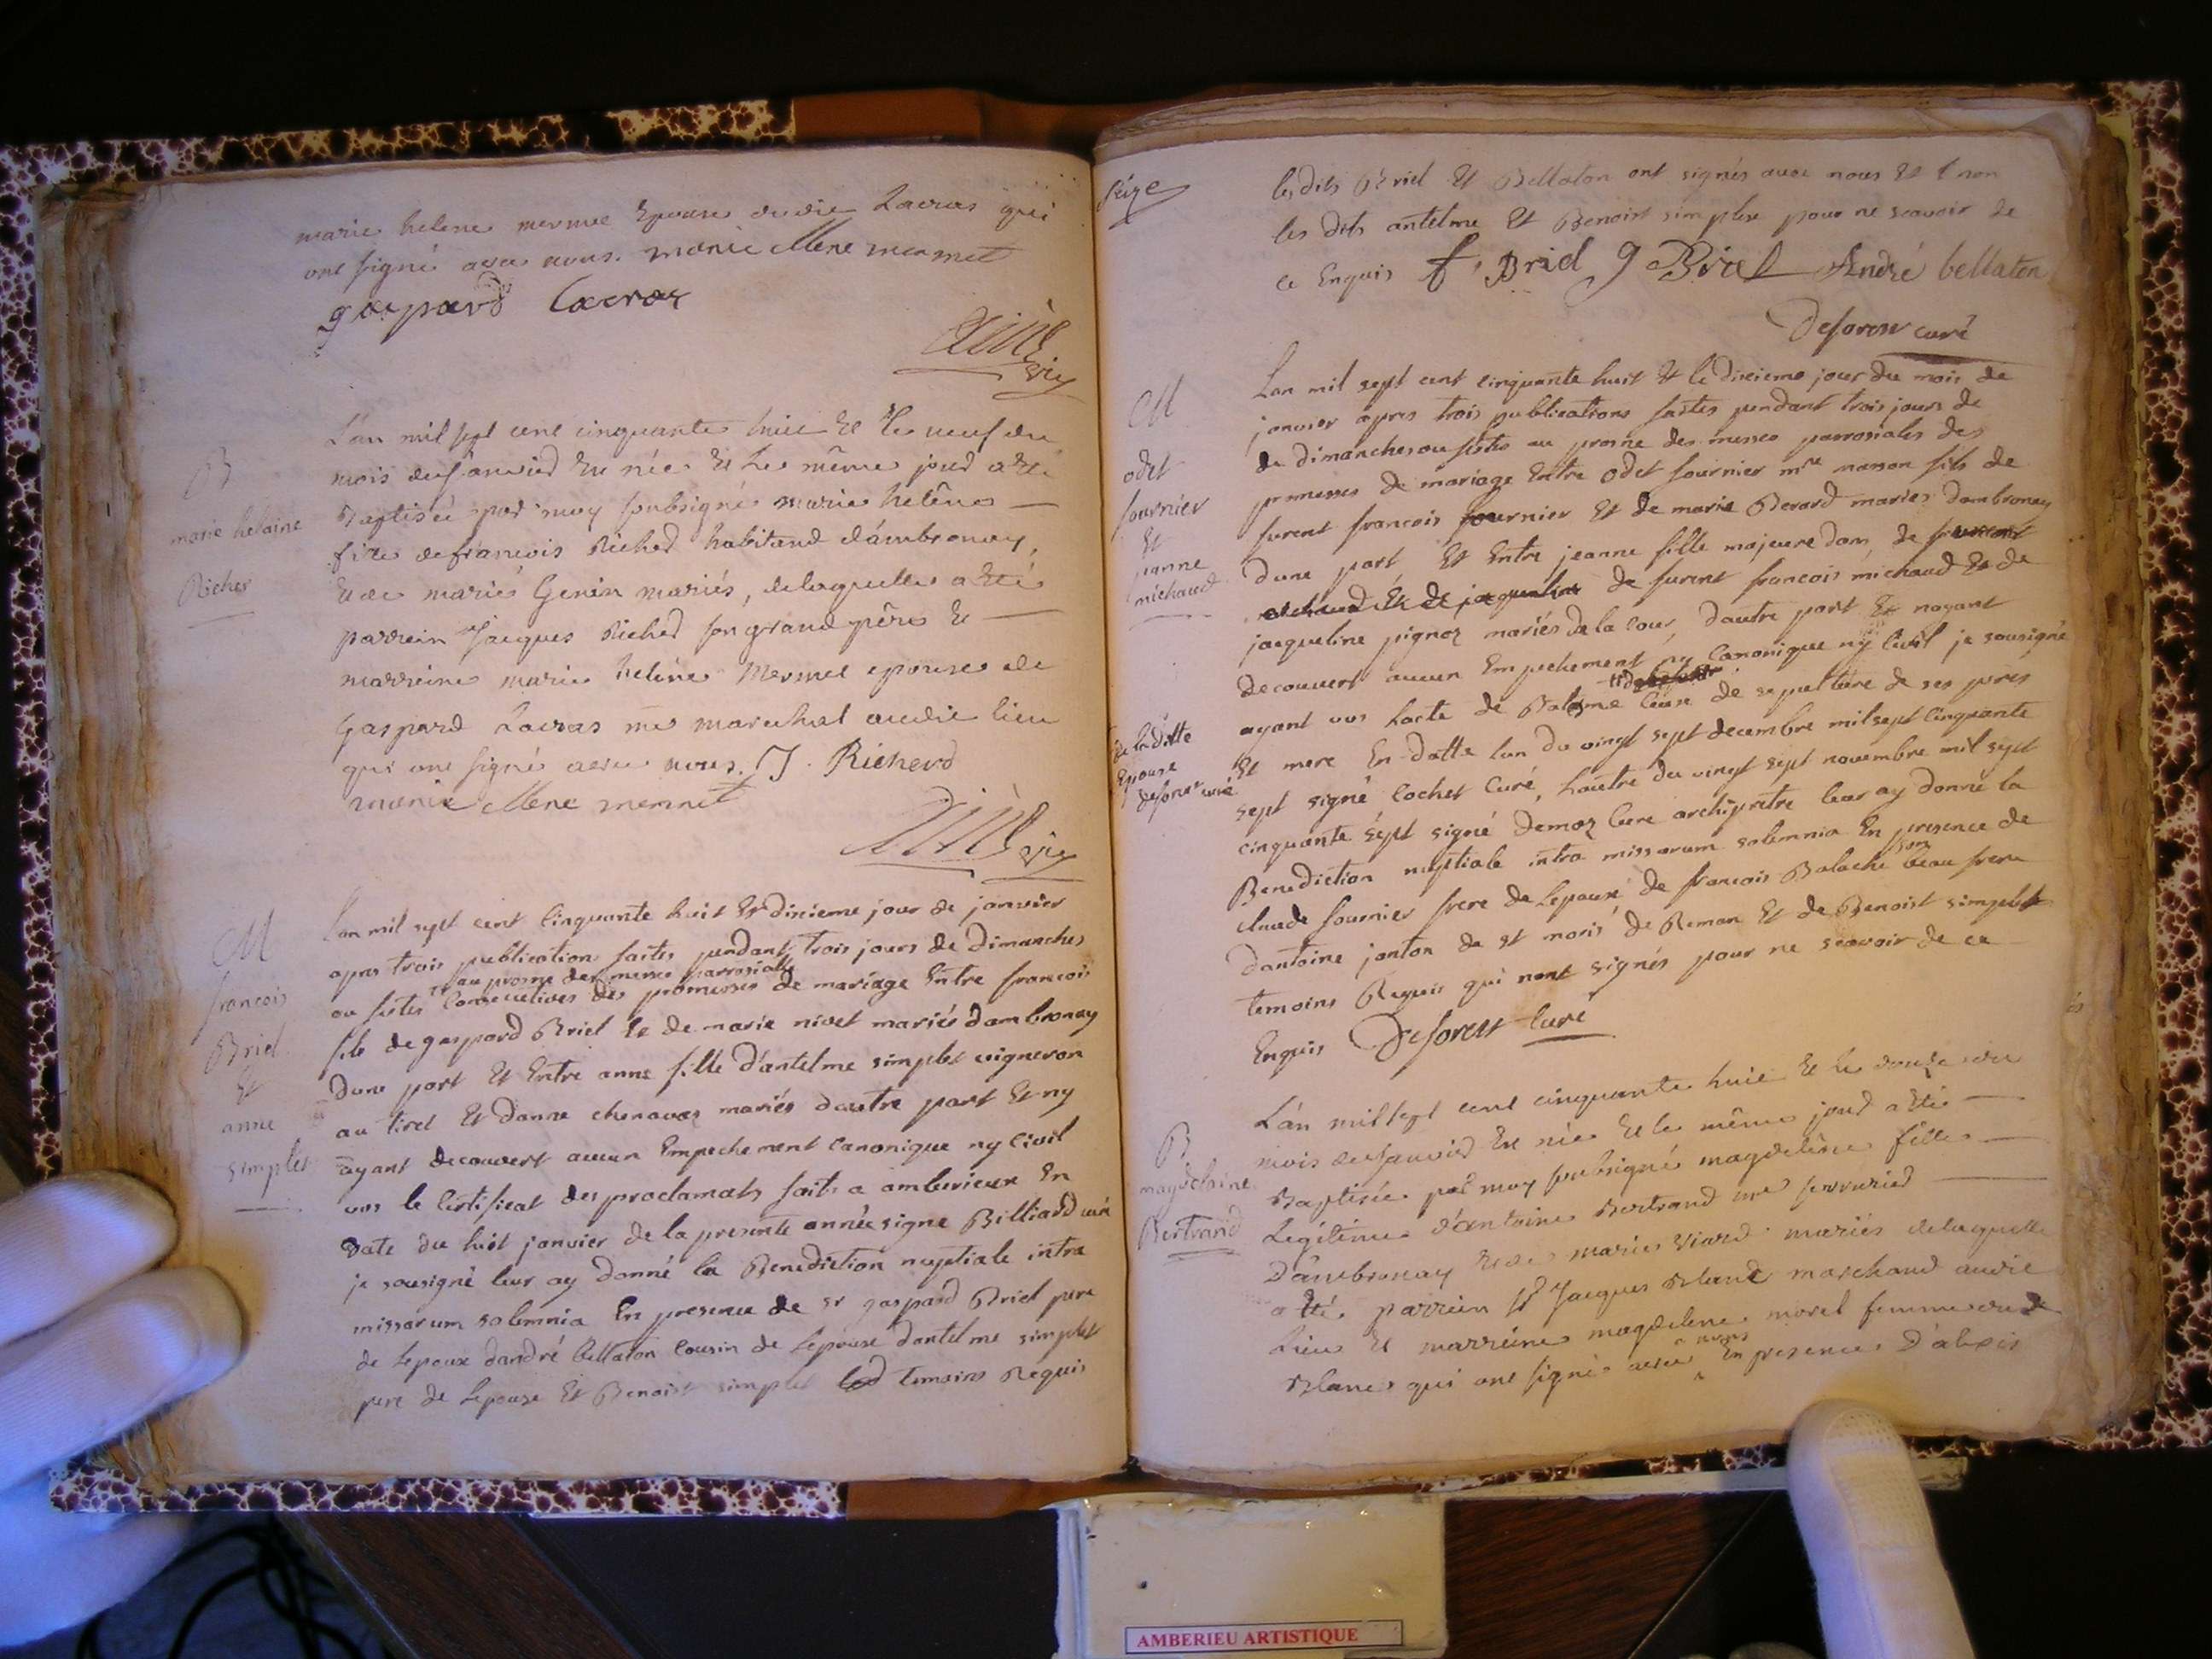 marie helene mermet Epouse dudit Lacras qui
ont signé avec nous. marie elene mermet
gaspard Lacras
B
marie helaine
Richer
L'an mil sept cent cinquante huit et le neuf du
mois de janvier Est née et Le même jour a Eté
Baptisée par moy soubsigné marie helène
fille de francois Richer habitand d'ambronay,
et de marie Genin mariés, delaquelle a Eté
parrein Jacques Richer son grand père et
marreine marie helène Mermet epouse de
Gaspard Lacras me marechal audit lieu
qui ont signé avec nous. J. Richerd
marie elene mermet
M
francois
Briel
Et
anne
simplet
Lan mil sept cent Cinquante huit Et dixieme jour de janvier
apres trois publication faites pendant trois jours de dimanches
au prosne des messes parrosialles
ou festes Consecutives des promesses de mariage Entre francois
fils de gaspard Briel Et de marie nivet mariés dambronay
dune part Et Entre anne fille d'antelme simplet vigneron
au tiret Et danne chenavas mariés dautre part Et ny
ayant decouvert aucun Empechement canonique ny civil
vus le Certificat des proclamats faits a amberieux En
date du huit janvier de la presente année signe Billiard curé
je sousigné leur ay donné la Benediction nuptiale intra
missarum solemnia En presence de sr gaspard Briel pere
de Lepoux dandré bellaton cousin de Lepouse dantelme simplet
pere de Lepouse Et Benoist simplet temoins Requis
seize
lesdits Briel Et Bellaton ont signés avec nous Et non
les dits antelme Et Benoist simplet pour ne scavoir de
ce Enquis f. Briel g Briel André bellaton
deforest curé
M
odet
fournier
Et
janne
michaud
Lan mil sept cent cinquante huit Et le dixieme jour du mois de
janvier apres trois publications faites pendant trois jours de
de dimanches ou festes au prosne des messes parrosiales des
promesses de mariage Entre odet fournier mre masson fils de
furent francois fournier Et de marie Berard mariés dambronay
dune part Et Entre jeanne fille majeure de
michaud Et de jaqueline de furent francois michaud Et de
jacqueline pignoz mariés de la cour, dautre part Et nayant
decouvert aucun Empechement ny Canonique ny Civil je sousigné
ayant vus Lacte de de sepulture de ses peres
de laditte
Epouse
deforest curé
Et mere En datte lun du vingt sept decembre mil sept Cinquante
sept signé Cochet Curé, Lautre du vingt sept novembre mil sept
cinquante sept signé demoz Cure archipretre leur ay donné la
Benediction nuptiale intra missarum solemnia En presence de
claude fournier frere de Lepoux de francois Balache son beau frere
dantoine janton de st Et de Benoist simplet
temoins Requis qui nont signés pour ne scavoir de ce
Enquis deforest Curé
B
magdelaine
Bertrand
L'an mil sept cent cinquante huit et le douze du
mois de janvier Est née Et le même jour a Eté
Baptisée par moy soubsigné magdelène fille
Legitime d'antoine Bertrand me serrurier
D'ambronay et de marie Viard mariés delaquelle
a Eté parrein sr Jacques Blanc marchand audit
Lieu et marreine magdelene morel femme dud
Blanc qui ont signé avec nous En presence D'alexis
AMBERIEU ARTISTIQUE